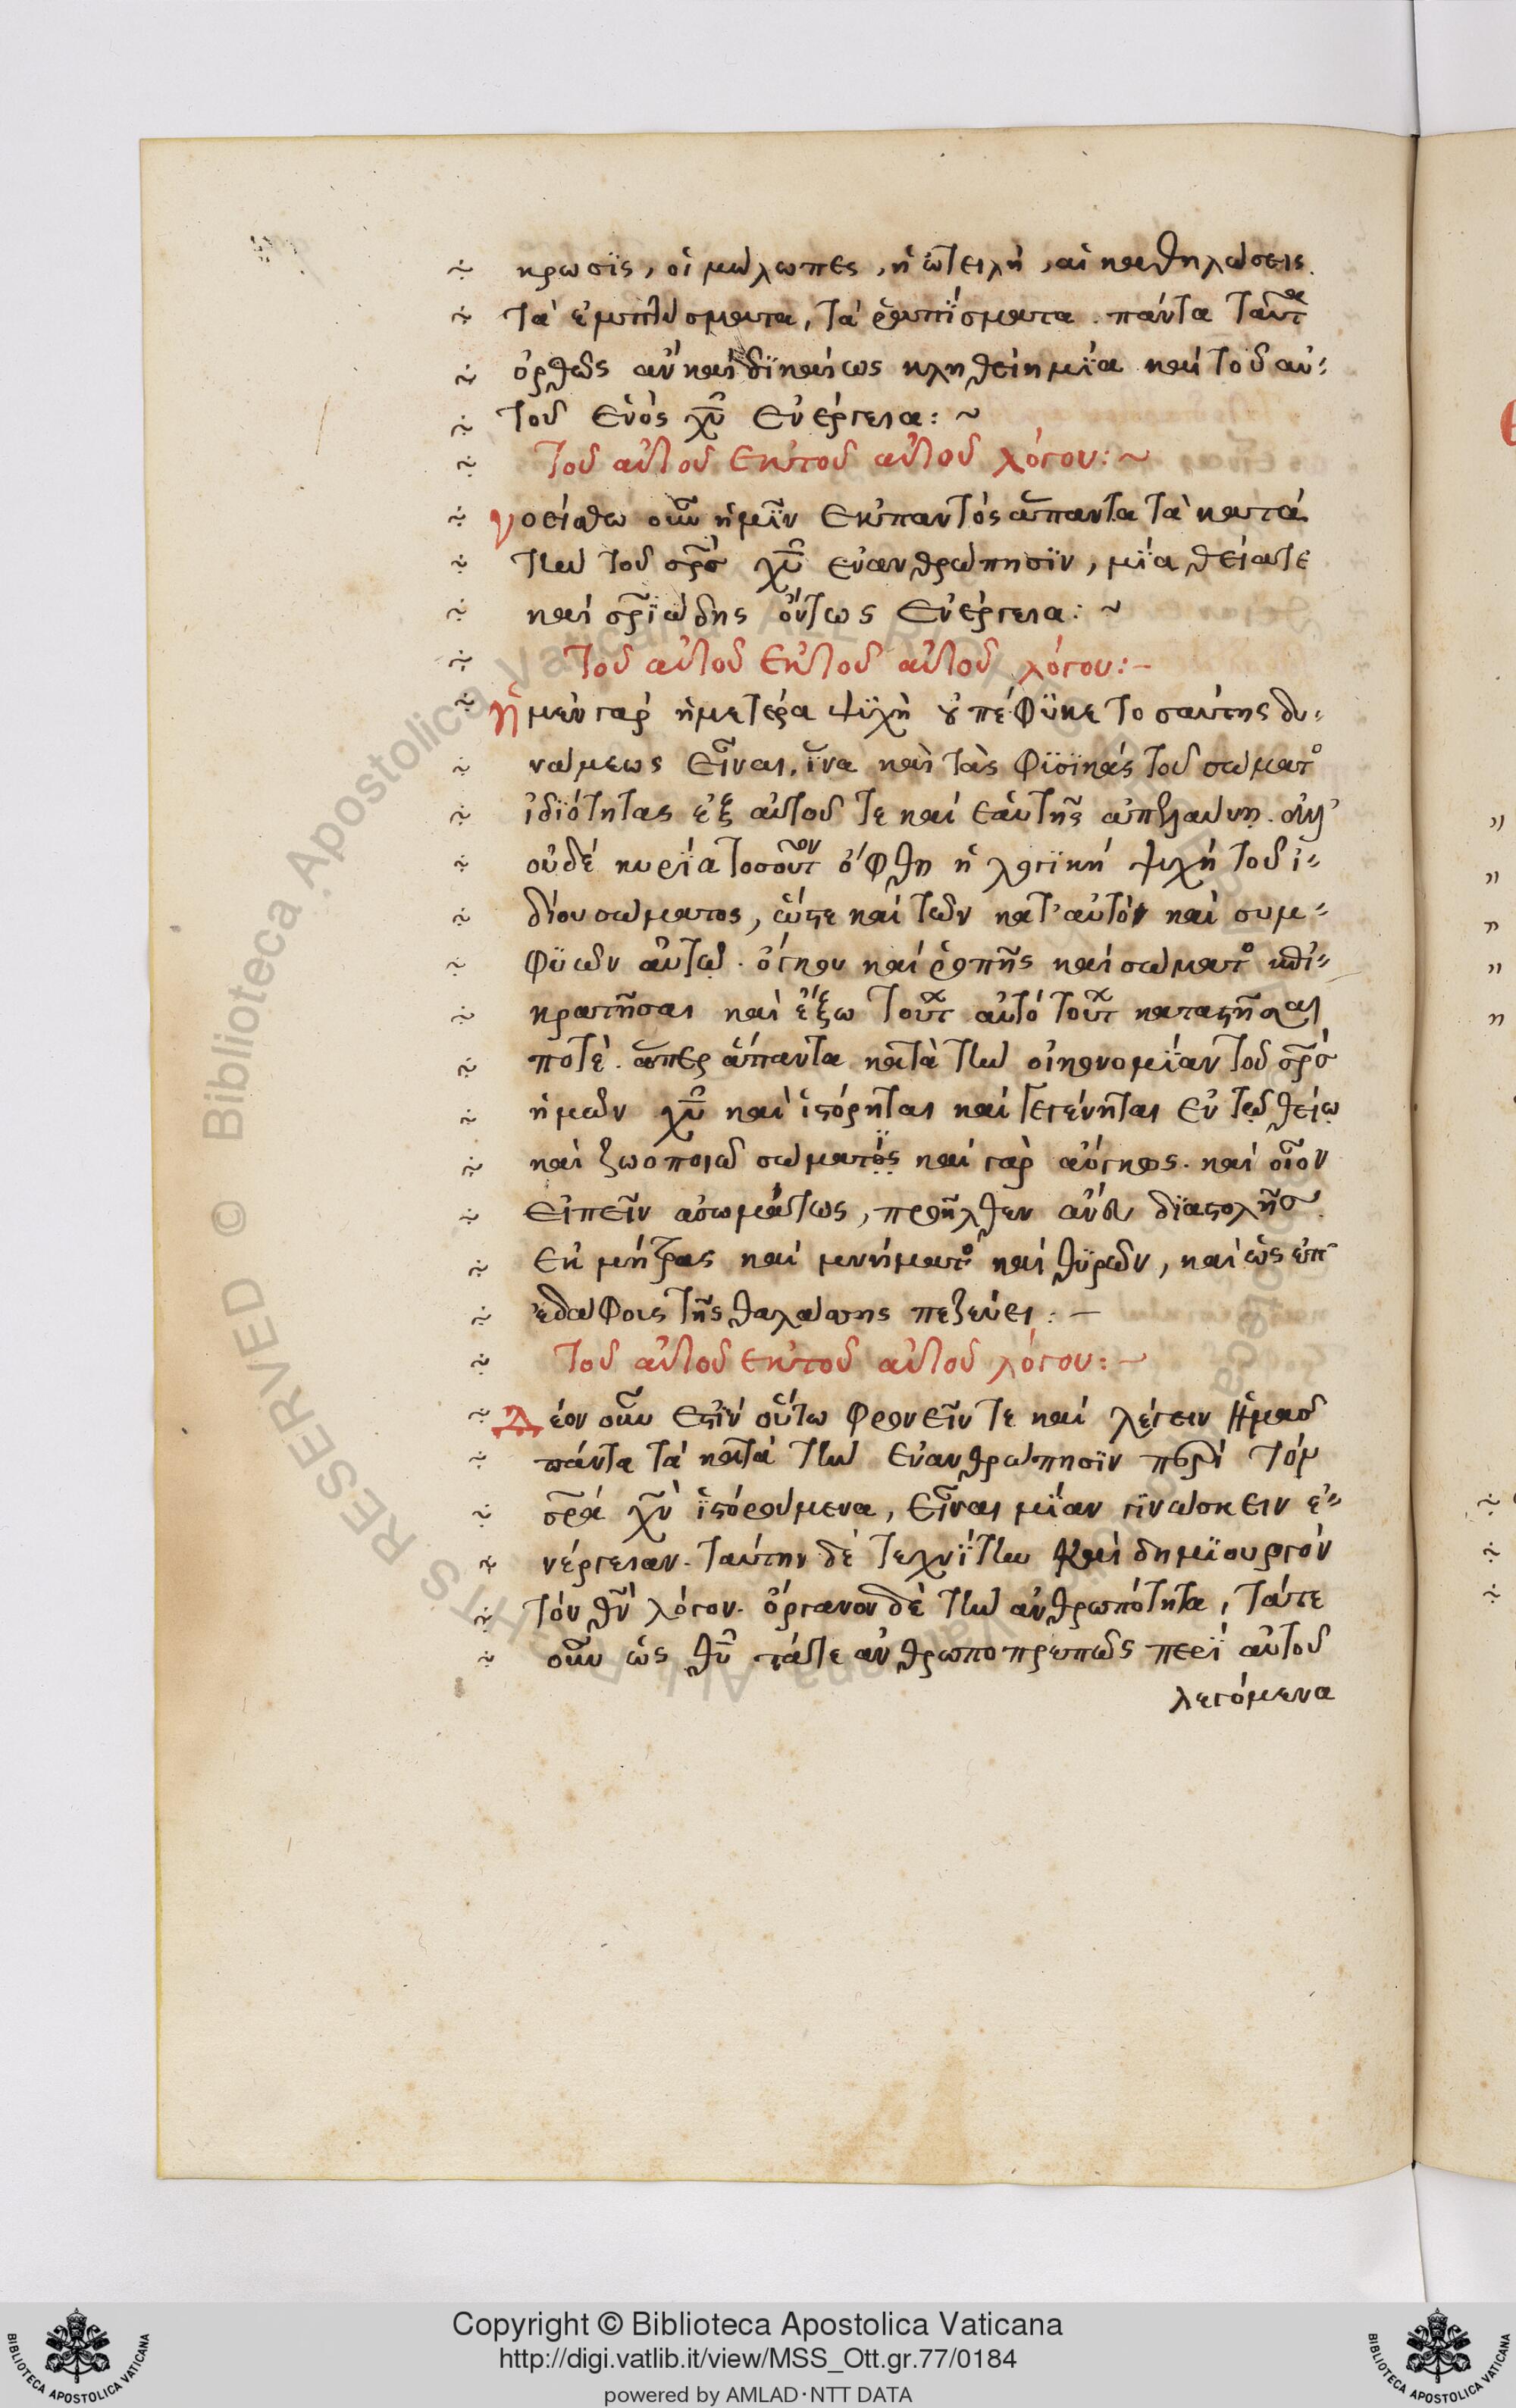 κρωσϊς, οἱ μώλωπες, ἡ ὠτειλὴ, αἱ καθηλώσεις.
τὰ ἐμπτύσματα, τὰ ῥαπΐσματα. πάντα ταῦτα
ὀρθῶς ἂν καὶ δϊκαίως κληθείη μΐα καὶ τοῦ αὐ-
τοῦ ἑνὸς χῦ ἐνέργεια: ~
Τοῦ αὐτοῦ ἐκ τοῦ αὐτοῦ λόγου: ~
νοείσθω οὖν ἡμῖν ἐκ παντὸς ἅπαντα τὰ κατὰ
τὴν τοῦ σρσ χῦ ἐνανθρώπησϊν, μΐα θεία τε
καὶ σρϊώδης ὄντως ἐνέργεια: ~
Τοῦ αὐτοῦ ἐκ τοῦ αὐτοῦ λόγου: -
ἡ μὲν γὰρ ἡμετέρα ψϋχὴ οὐ πέφϋκε τοσαύτης δυ-
νάμεως εἶναι, ἵνα καὶ τὰς φϊσϊκὰς τοῦ σώματος
ἰδϊότητας ἐξ αὐτοῦ τε καὶ ἑαυτῆς ἀπελαύνῃ. ἀλλ'
οὐδὲ κυρΐα τοσοῦτον ὤφθη ἡ λογϊκὴ ψυχὴ τοῦ ἰ-
δίου σώματος, ὥστε καὶ τῶν κατ' αὐτὸν καὶ συμ-
φϋῶν αὐτῷ. ὄγκου καὶ ῥοπῆς καὶ σώματος
κρατῆσαι καὶ ἔξω τούτ αὐτὸ τούτ καταστῆσαι
ποτὲ. ἅπερ ἅπαντα κατὰ τὴν οἰκονομΐαν τοῦ σρσ
ἡμῶν χῦ καὶ ἱστόρηται καὶ γεγένηται ἐν τῷ θείῳ
καὶ ζωοποιῷ σώματος καὶ γὰρ ἀόγκως. καὶ οἷον
εἰπεῖν ἀσωμάτως, προῆλθεν ἄνευ δϊαστολῆς.
ἐκ μήτρας καὶ μνήματος καὶ θϋρῶν, καὶ ὡς ἐπ'
ἐδάφους τῆς θαλάσσης πεζεύει: -
Τοῦ αὐτοῦ ἐκ τοῦ αὐτοῦ λόγου: ~
Δέον οὖν ἐστϊν οὕτω φρονεῖν τε καὶ λέγειν ἡμᾶς
πάντα τὰ κατὰ τὴν ἐνανθρώπησϊν περὶ τὸν
σρα χν ἱστορούμενα, εἶναι μΐαν γϊνώσκειν ἐ-
νέργειαν. ταύτην δὲ τεχνΐτην καὶ δημϊουργὸν
τὸν θν λόγον. ὄργανον δὲ τὴν ἀνθρωπότητα, τά τε
οὖν ὡς θῦ τά τε ἀνθρωποπρεπῶς περὶ αὐτοῦ
λεγόμενα
Copyright © Biblioteca Apostolica Vaticana
http://digi.vatlib.it/view/MSS_Ott.gr.77/0184
powered by AMLAD·NTT DATA